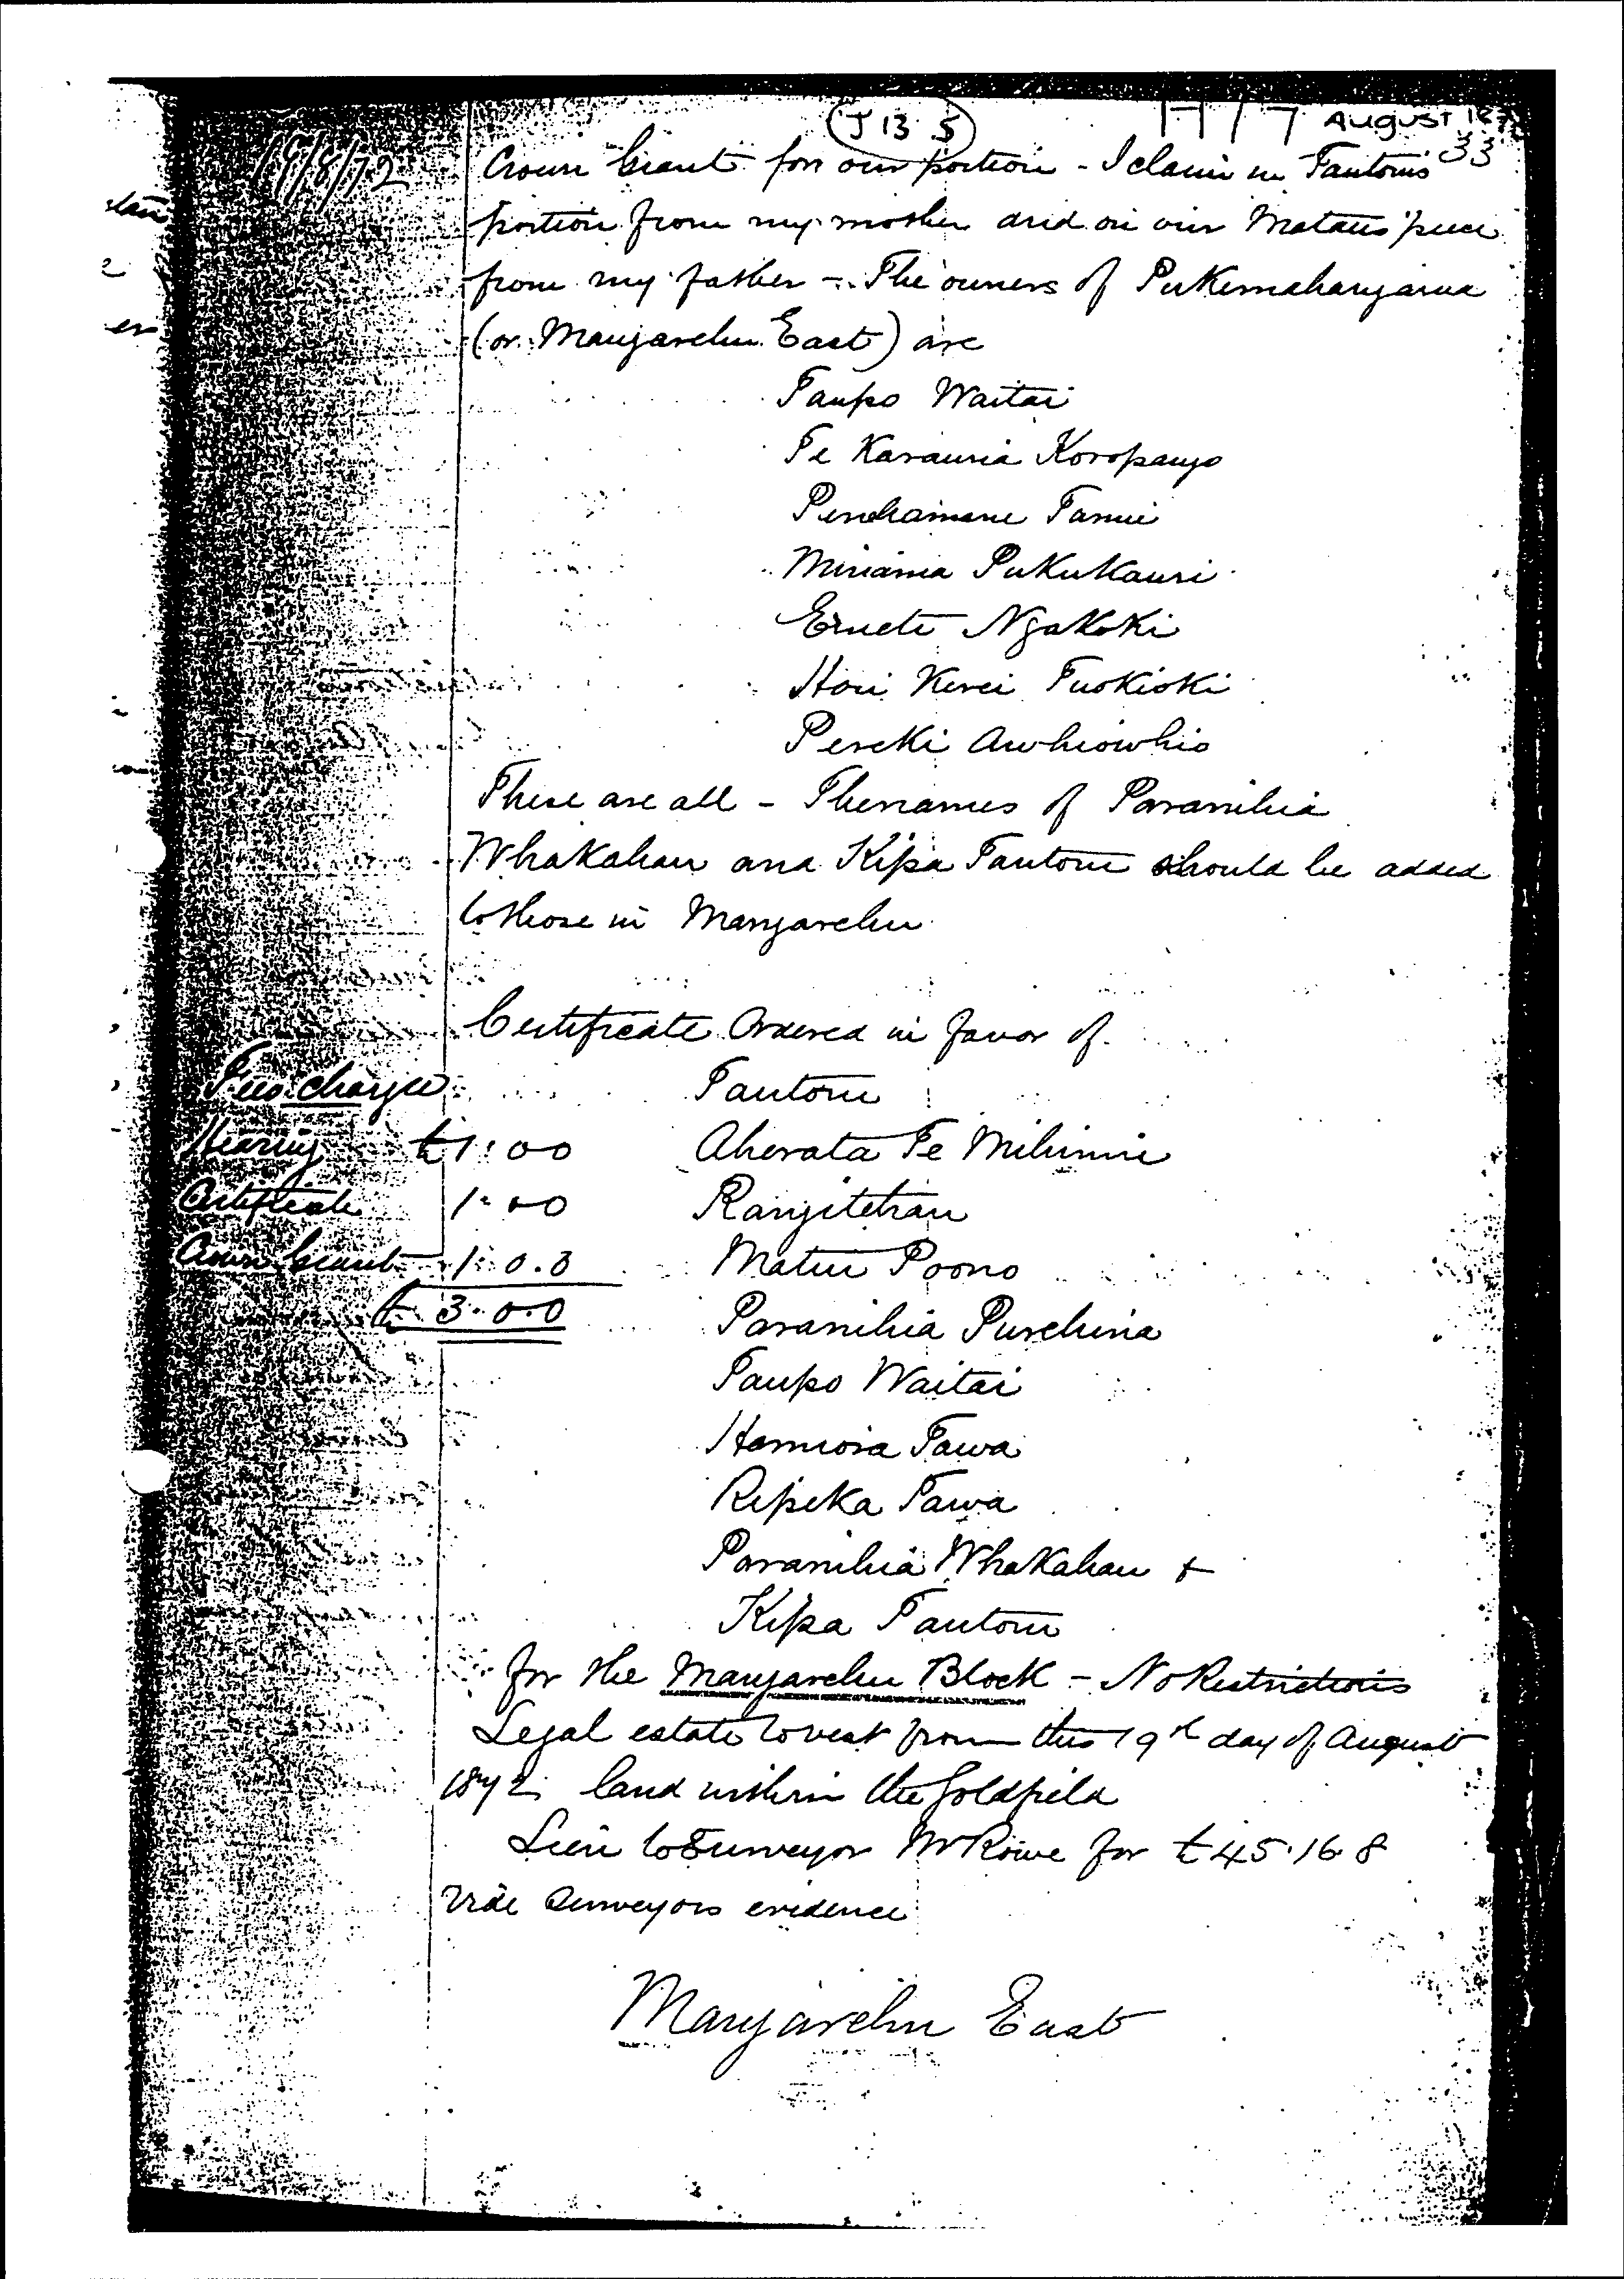 J 13 S
August 187
33
19/8/72
Crown Grant for our portion - I claim in Tautoru's
portion from my mother and on our Matau's piece
from my father - The owners of Pukemahangarua
(or Mangarehu East) are
Taupo Waitai
Te Karauria Koropango
Penehamene Tanui
Miriama Pukukauri
Erueti Ngakoki
Hori Kerei Tuokioki
Pereki Awhiowhio
These are all - The names of Paranihia
Whakahau and Kipa Tautoru should be added
to those in Mangarehu
Certificate Ordered in favor of
Fees charged
Tautoru
Hearing £1:00 Aherata Te Mihinui
Certificate 1:00 Rangitetuau
Crown Grant 1:0.0 Matiu Poono
£ 3.0.0
Paranihia Purehina
Taupo Waitai
Hamiora Tawa
Ripeka Tawa
Paranihia Whakahau &
Kipa Tautoru
for the Mangarehu Block - No Restrictions
Legal estate to vest from this 19th day of August
1872 land within the Goldfield
Lien to Surveyor Mr Rowe for £45.16.8
Vide Surveyors evidence
Mangarehu East